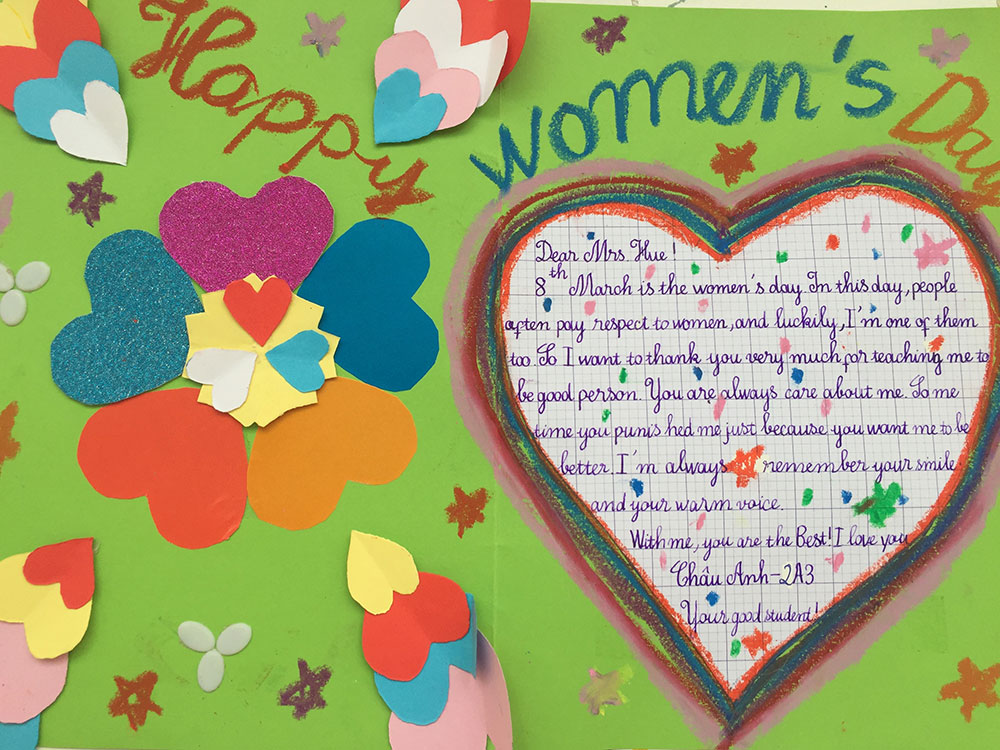 Happy Women's Day
Dear Mrs. Hue!
8th March is the women's day. In this day, people
often pay respect to women, and luckily, I'm one of them
too. So I want to thank you very much for teaching me to
be good person. You are always care about me. So me
time you punis hed me just because you want me to be
better. I'm always remember your smile
and your warm voice.
With me, you are the Best! I love you
Châu Anh-2A3
Your good student!